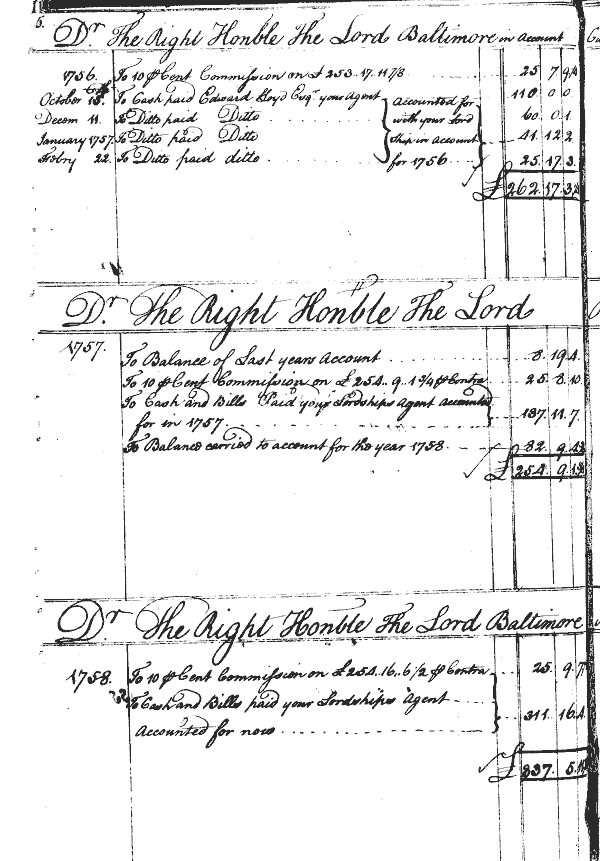 6.
Dr The Right Honble The Lord Baltimore in Account
1756. To 10 ⅌ Cent Commission on £ 253.17.11 7/8 25 7 9¼
October 15. To Cash paid Edward Lloyd Esqr. your Agent 110 0 0
Decem 11. To Ditto paid Ditto 60 0 1
January 1757. To Ditto paid Ditto 41 12 2
Febry 22. To Ditto paid ditto 25 17 3
Accounted for
with your Lord
Ship in Account
for 1756
£ 262.17.3
Dr. The Right Honble The Lord
1757. To Balance of Last years Account 8.19.4
To 10 ⅌ Cent Commission on £ 254.9.1 3/4 ⅌ Contra 25.8.10
To Cash and Bills Paid your Lordships Agent Accounted
for in 1757 137.11.7.
To Balance carried to account for the year 1758 82.9.
£ 254.9.
Dr The Right Honble The Lord Baltimore
1758. To 10 ⅌ Cent Commission on £ 254.16.6 1/2 ⅌ Contra 25.9.7
To Cash and Bills paid your Lordships Agent
Accounted for now 311.16.4
£ 337.5.